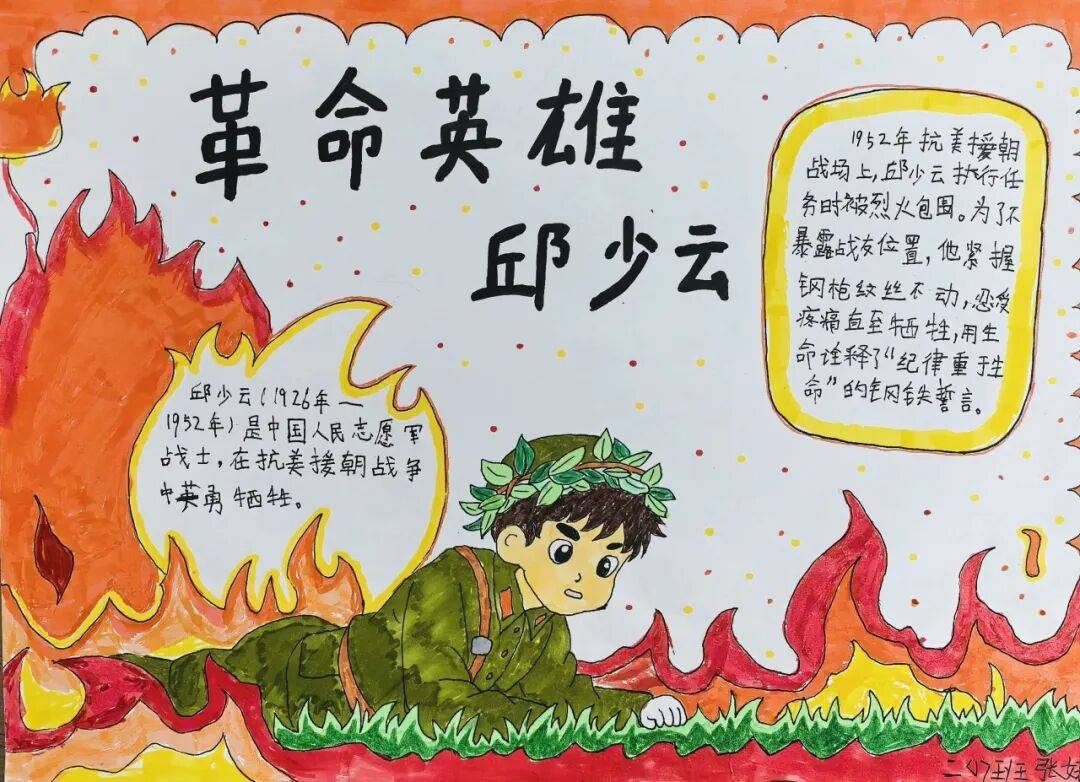 革命英雄
邱少云
1952年抗美援朝
战场上,邱少云执行任
务时被烈火包围。为了不
暴露战友位置,他紧握
钢枪纹丝不动,忍受
疼痛直至牺牲,用生
命诠释了“纪律重于生
命”的钢铁誓言。
邱少云(1926年—
1952年)是中国人民志愿军
战士,在抗美援朝战争
中英勇牺牲。
班 张